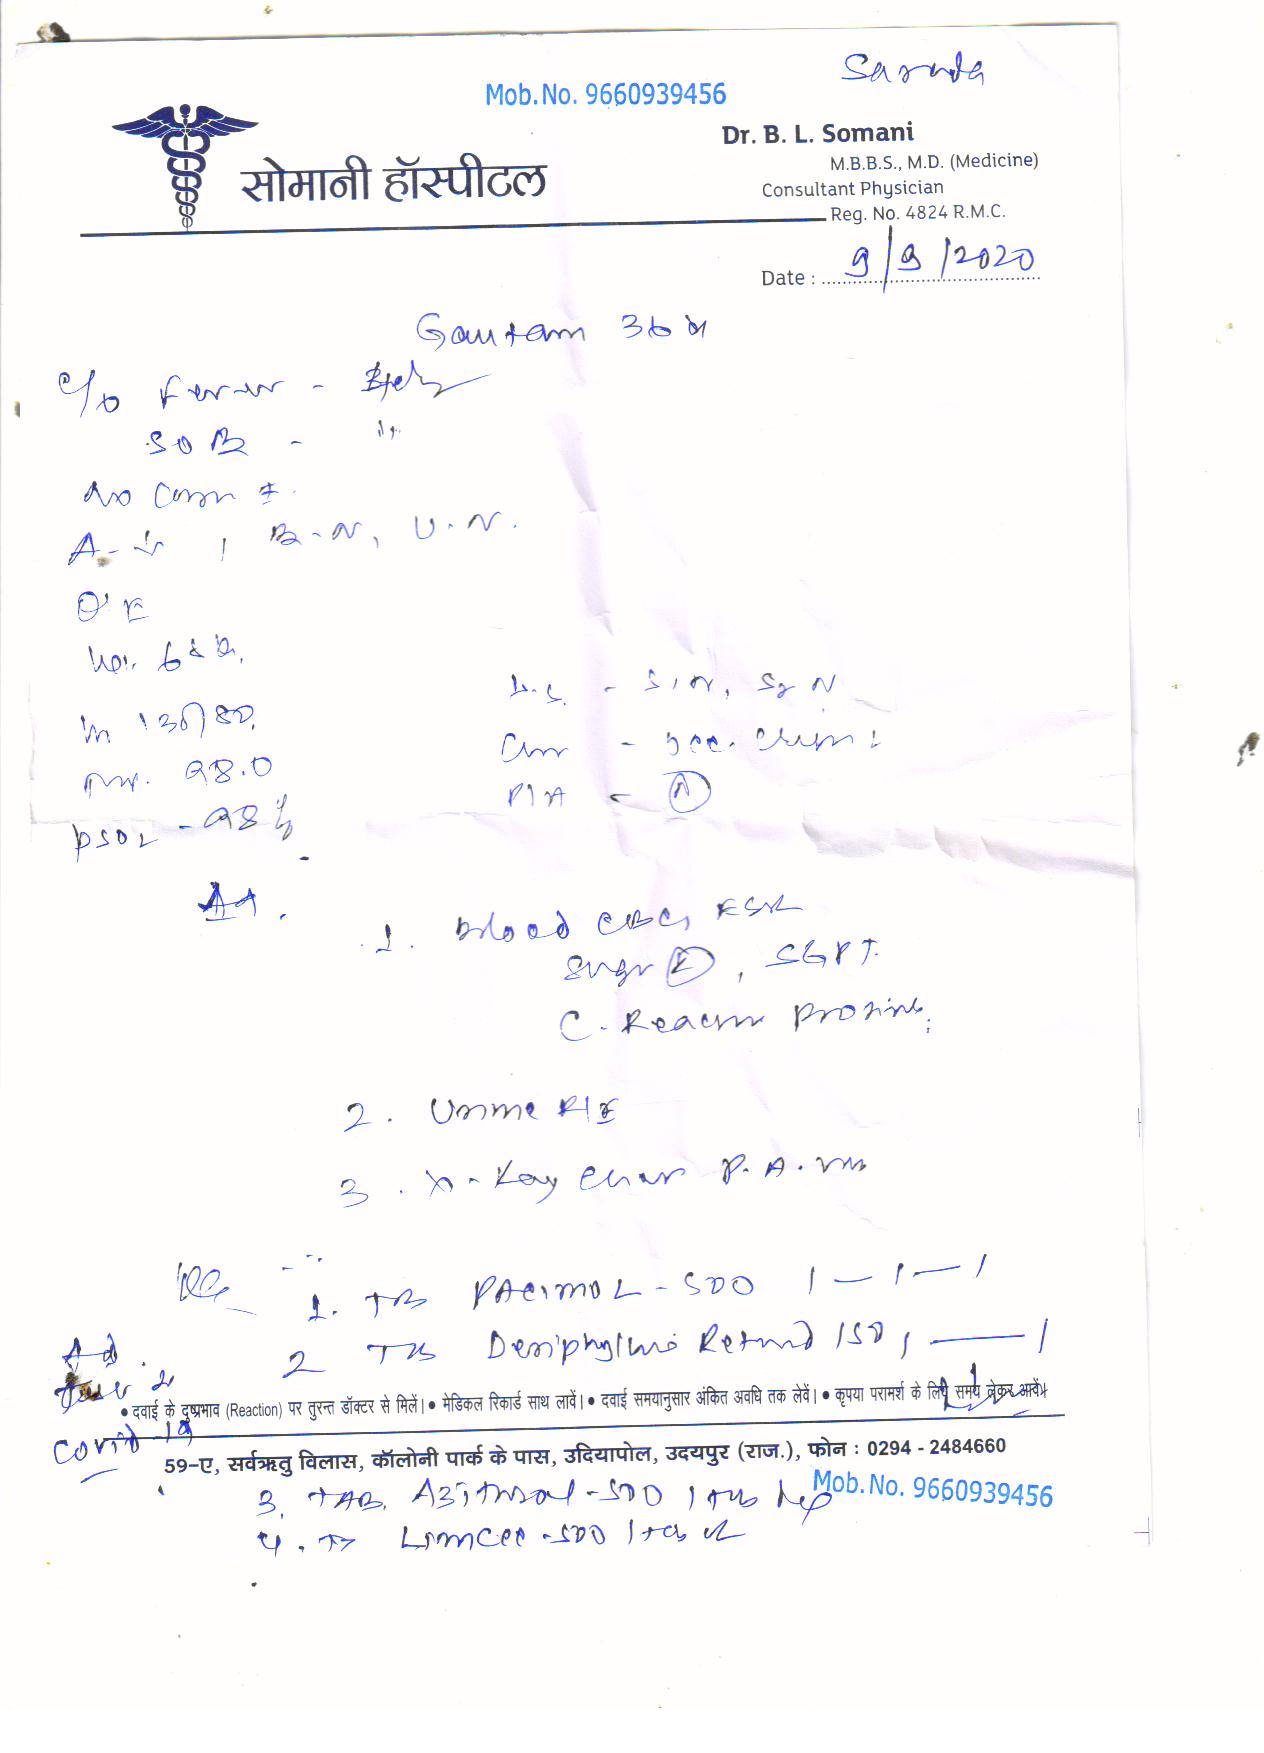 Saruda
Mob.No. 9660939456
Dr. B. L. Somani
M.B.B.S., M.D. (Medicine)
सोमानी हॉस्पीटल
Consultant Physician
Reg. No. 4824 R.M.C.
Date : 9/9/2020
Gautam 36
c/o Fever -
SOB - 11
No Com
A- ↓ , B-N, U-N.
O/E
130/80
98.0
- S1N, S2N
- Occ. 
PSO2 - 98%
P/A - N
Ad.
1. Blood CBC, ESR
Sugar R, SGPT.
C-Reactive Protein
2. Urine R/E
3. X-Ray Chest P.A. View
Rx
1. TB PACIMOL-500 1-1-1
Ad.
2 TB Deriphyllin Retard 150, 1 — 1
• दवाई के दुष्प्रभाव (Reaction) पर तुरन्त डॉक्टर से मिलें। • मेडिकल रिकार्ड साथ लावें। • दवाई समयानुसार अंकित अवधि तक लेवें। • कृपया परामर्श के लिये समय लेकर आवें।
Covid-19
59-ए, सर्वऋतु विलास, कॉलोनी पार्क के पास, उदियापोल, उदयपुर (राज.), फोन : 0294 - 2484660
3. TAB. Azithral-500 1 tab
Mob.No. 9660939456
4. TB Limcee-500 1 tab d